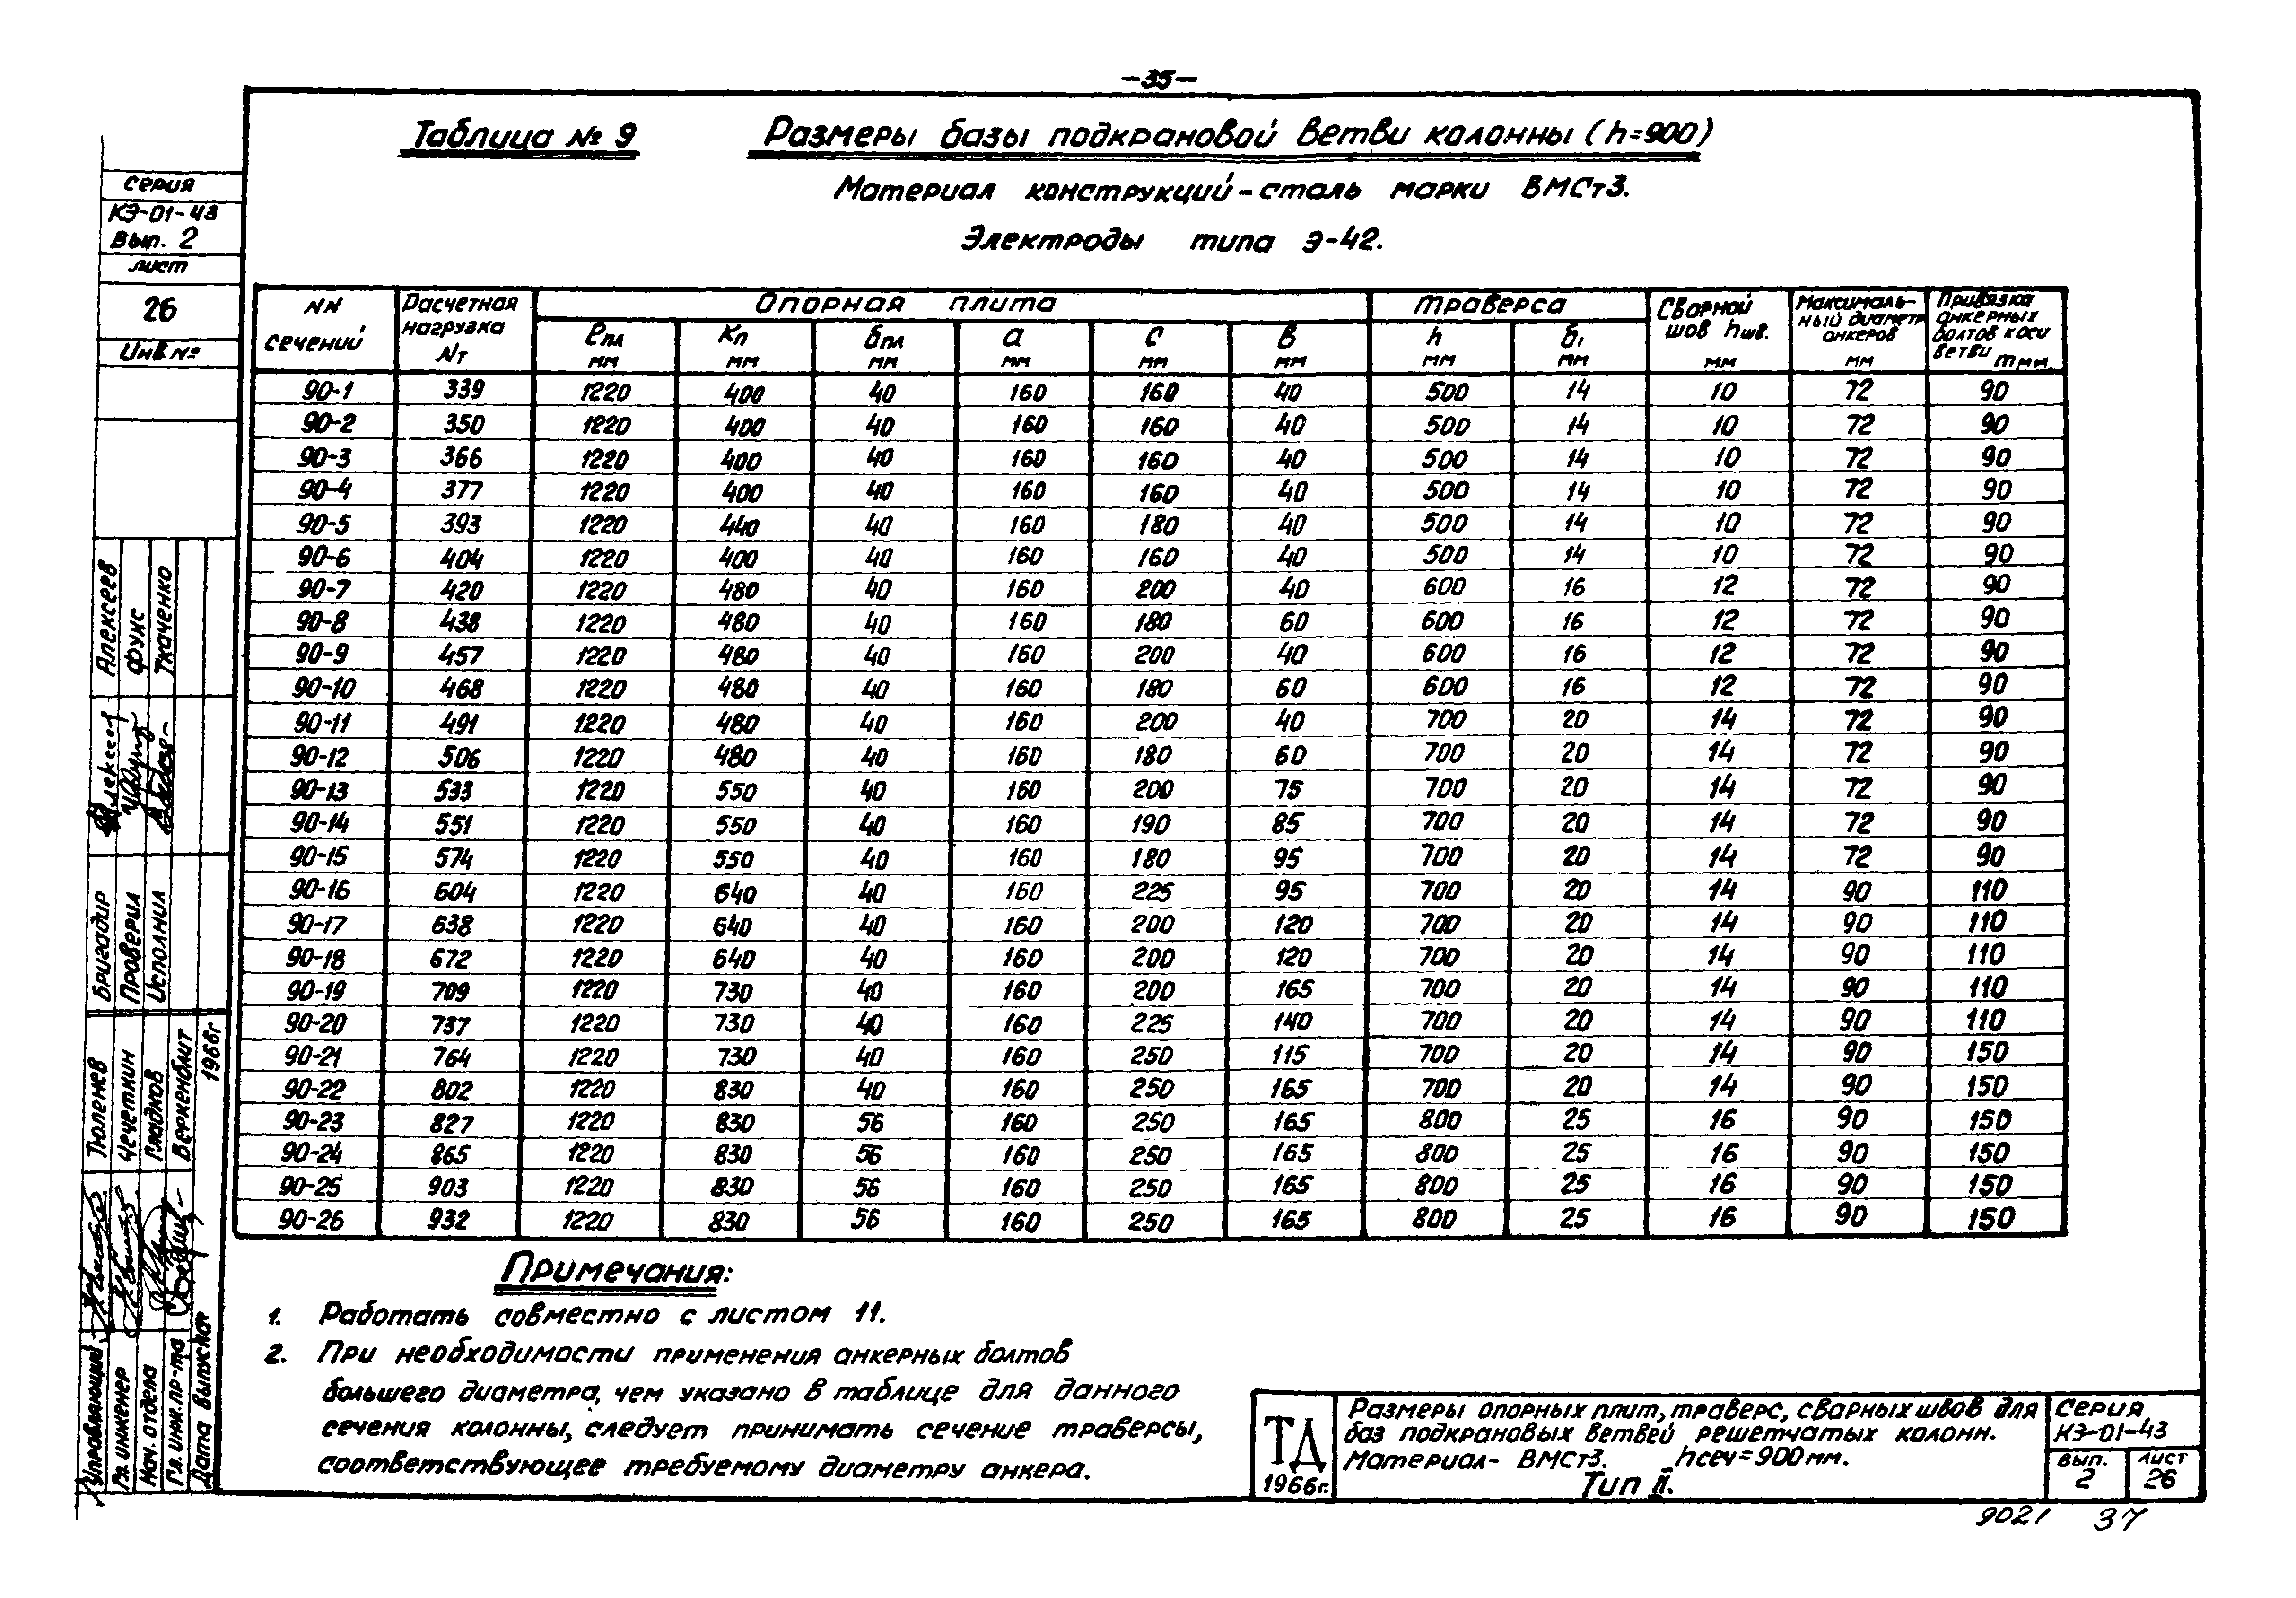 -35-
Таблица № 9 Размеры базы подкрановой ветви колонны (h=900)
Материал конструкций - сталь марки ВМСт3.
Электроды типа Э-42.
серия
КЭ-01-43
Вып. 2
лист
26
Инв №
NN сечений Расчетная нагрузка Nт Опорная плита траверса Сворной шов hшв. мм Максималь-ный диаметр анкеров мм Привязка анкерных болтов коси ветви m мм.
ℓпл мм Kп мм δпл мм а мм с мм в мм h мм δ₁ мм
90-1 339 1220 400 40 160 160 40 500 14 10 72 90
90-2 350 1220 400 40 160 160 40 500 14 10 72 90
90-3 366 1220 400 40 160 160 40 500 14 10 72 90
90-4 377 1220 400 40 160 160 40 500 14 10 72 90
90-5 393 1220 440 40 160 180 40 500 14 10 72 90
90-6 404 1220 400 40 160 160 40 500 14 10 72 90
90-7 420 1220 480 40 160 200 40 600 16 12 72 90
90-8 438 1220 480 40 160 180 60 600 16 12 72 90
90-9 457 1220 480 40 160 200 40 600 16 12 72 90
90-10 468 1220 480 40 160 180 60 600 16 12 72 90
90-11 491 1220 480 40 160 200 40 700 20 14 72 90
90-12 506 1220 480 40 160 180 60 700 20 14 72 90
90-13 533 1220 550 40 160 200 75 700 20 14 72 90
90-14 551 1220 550 40 160 190 85 700 20 14 72 90
90-15 574 1220 550 40 160 180 95 700 20 14 72 90
90-16 604 1220 640 40 160 225 95 700 20 14 90 110
90-17 638 1220 640 40 160 200 120 700 20 14 90 110
90-18 672 1220 640 40 160 200 120 700 20 14 90 110
90-19 709 1220 730 40 160 200 165 700 20 14 90 110
90-20 737 1220 730 40 160 225 140 700 20 14 90 110
90-21 764 1220 730 40 160 250 115 700 20 14 90 150
90-22 802 1220 830 40 160 250 165 700 20 14 90 150
90-23 827 1220 830 56 160 250 165 800 25 16 90 150
90-24 865 1220 830 56 160 250 165 800 25 16 90 150
90-25 903 1220 830 56 160 250 165 800 25 16 90 150
90-26 932 1220 830 56 160 250 165 800 25 16 90 150
Примечания:
1. Работать совместно с листом 11.
2. При необходимости применения анкерных болтов
большего диаметра, чем указано в таблице для данного
сечения колонны, следует принимать сечение траверсы,
соответствующее требуемому диаметру анкера.
Бригадир Алексеев
Проверил Фукс
Исполнил Ткаченко
Управляющий Тюленев
Гл. инженер Чечеткин
Нач. отдела Гладков
Гл. инж. пр-та Беркенблит
Дата выпуска 1966г
ТД
1966г.
Размеры опорных плит, траверс, сварных швов для
баз подкрановых ветвей решетчатых колонн.
Материал - ВМСт3. hсеч=900мм.
Тип II.
серия
КЭ-01-43
вып. лист
2 26
9021 37